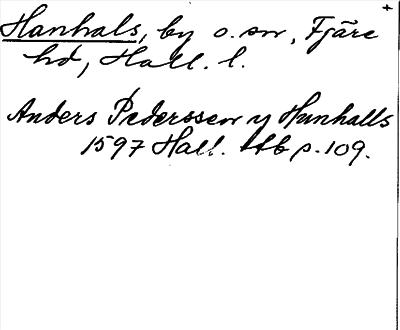 Hanhals, by o. sn, Fjäre
hd, Hall. l.
Anders Pederssenn y Hunhalls
1597 Hall. ltb p. 109.